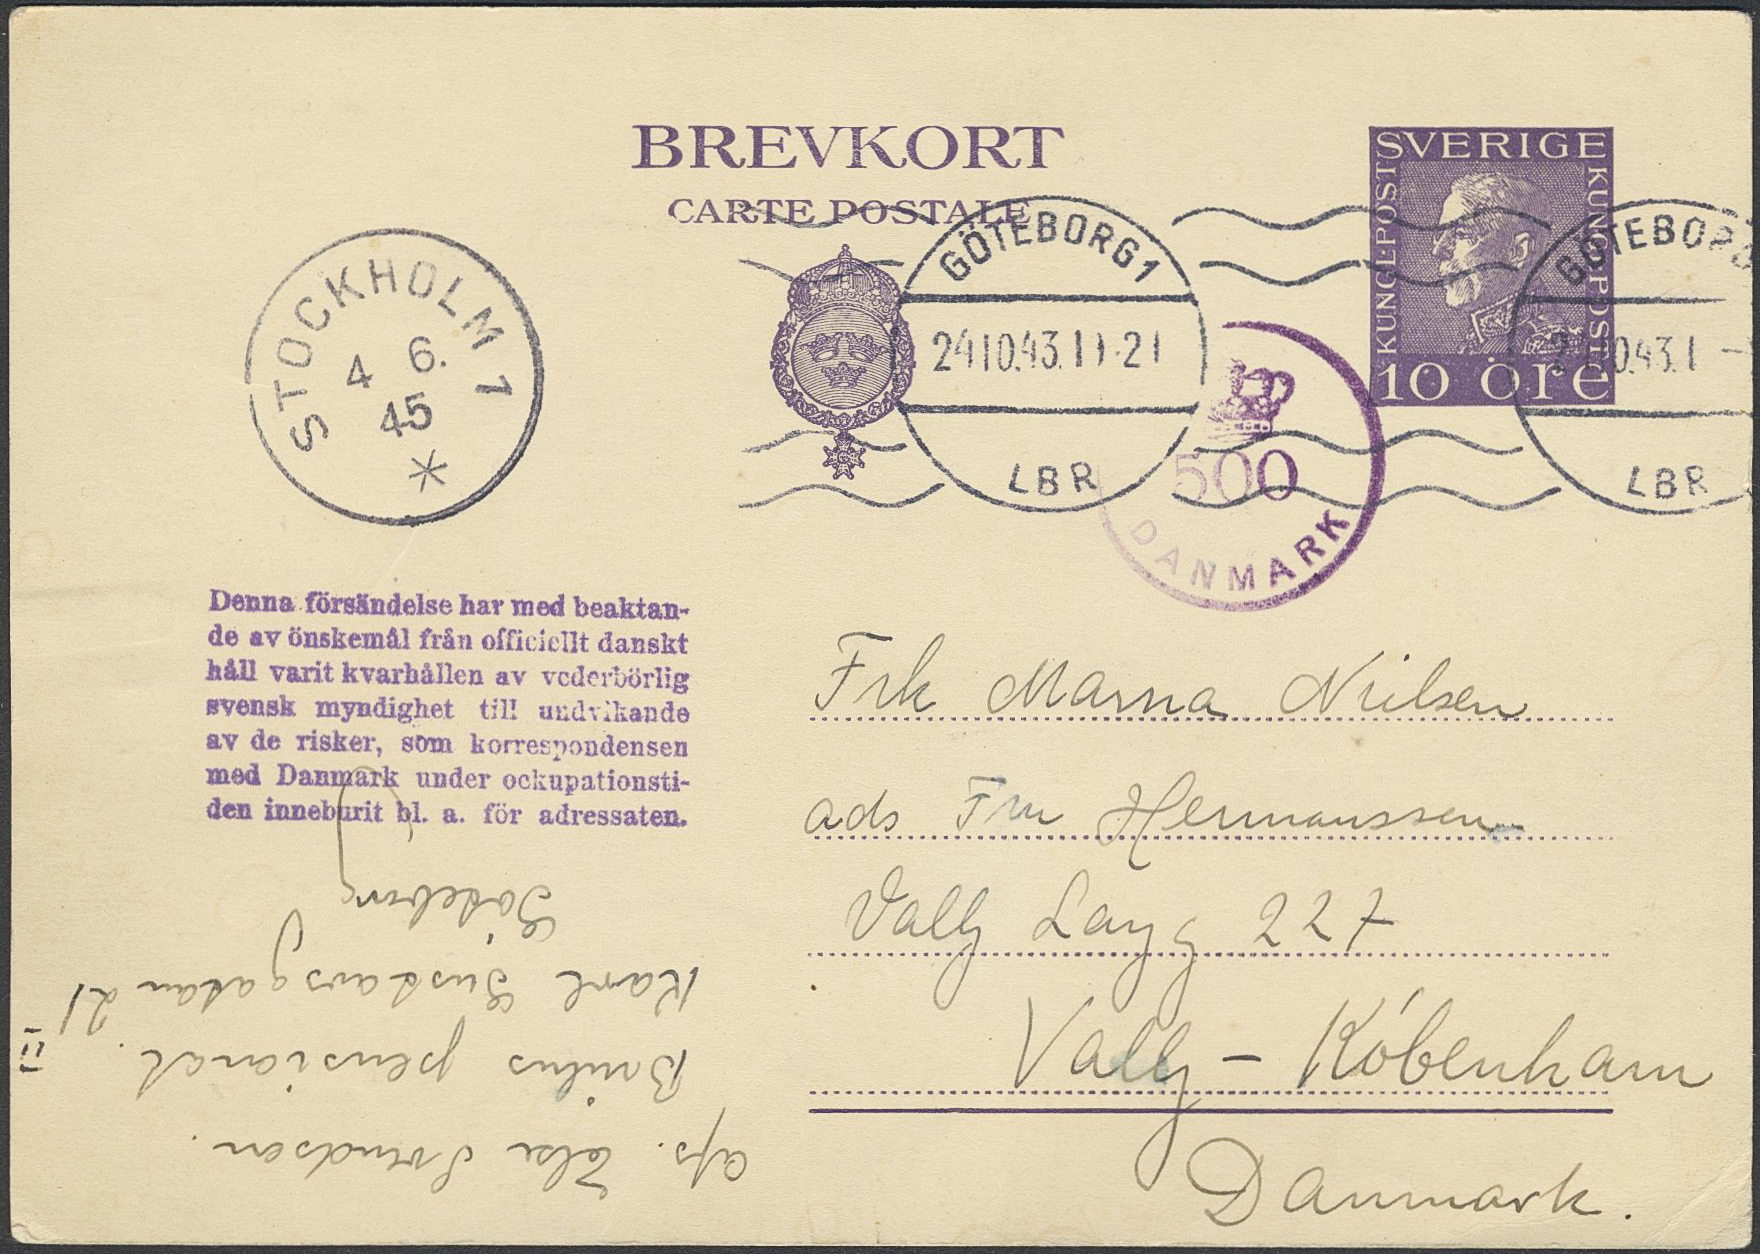 BREVKORT
CARTE POSTALE
SVERIGE
KUNGL. POST
KUNGL. POST
10 ÖRE
GÖTEBORG 1
24 10.43. 11-21
LBR
GÖTEBORG
10.43.1 -
LBR
STOCKHOLM 1
4 6.
45
*
500
DANMARK
Denna försändelse har med beaktan-
de av önskemål från officiellt danskt
håll varit kvarhållen av vederbörlig
svensk myndighet till undvikande
av de risker, som korrespondensen
med Danmark under ockupationsti-
den inneburit bl. a. för adressaten.
Frk Marna Nielsen
ads Fru Hermanssen
Valby Langg 227
Valby - Köbenham
Danmark.
afs. Else Svendsen.
pensionat.
Karl Gustavsgatan 21 II
Göteborg